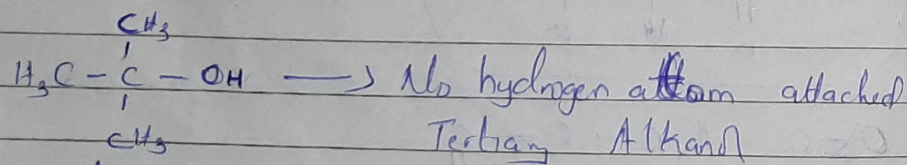 CH3
H3C - C - OH → No hydrogen attom attached
CH3
Tertiary Alkanol